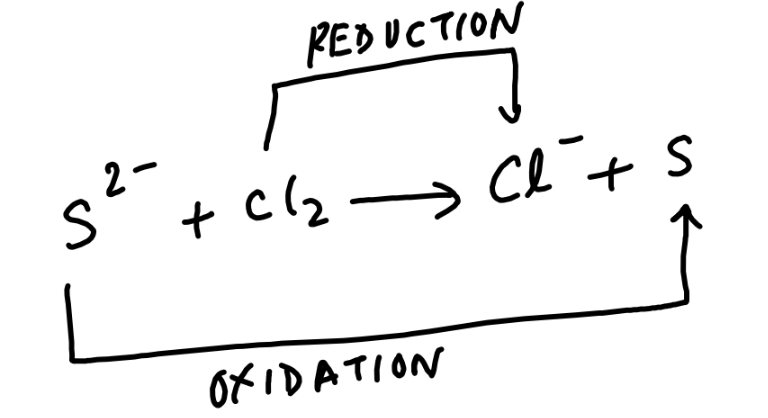 REDUCTION
S²⁻ + Cl₂ ⟶ Cl⁻ + S
OXIDATION